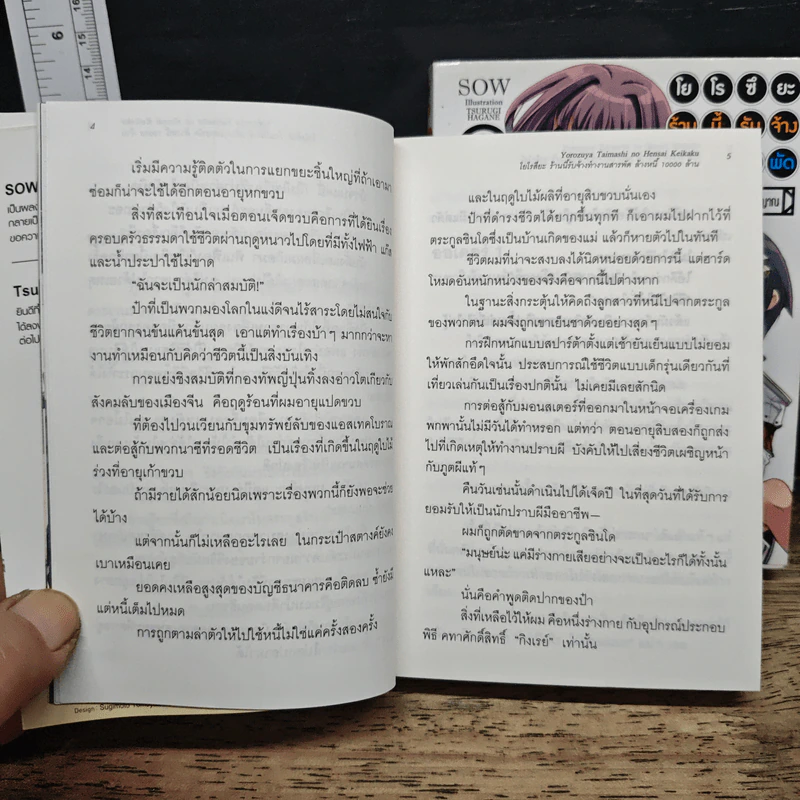 6
16
15
14
SOW
เป็นผลง
กลายเป็
ขอควา
Tsu
ยินดีที่
ได้ลง
ต่อไป
Design: Sugimoto
๔
เริ่มมีความรู้ติดตัวในการแยกขยะชิ้นใหญ่ที่ถ้าเอามา
ซ่อมก็น่าจะใช้ได้อีกตอนอายุหกขวบ
สิ่งที่สะเทือนใจเมื่อตอนเจ็ดขวบคือการที่ได้ยินเรื่อง
ครอบครัวธรรมดาใช้ชีวิตผ่านฤดูหนาวไปโดยที่มีทั้งไฟฟ้า แก๊ส
และน้ำประปาใช้ไม่ขาด
“ฉันจะเป็นนักล่าสมบัติ!”
ป๋าที่เป็นพวกมองโลกในแง่ดีจนไร้สาระโดยไม่สนใจกับ
ชีวิตยากจนข้นแค้นขั้นสุด เอาแต่ทำเรื่องบ้าๆ มากกว่าจะหา
งานทำเหมือนกับคิดว่าชีวิตนี้เป็นสิ่งบันเทิง
การแย่งชิงสมบัติที่กองทัพญี่ปุ่นทิ้งลงอ่าวโตเกียวกับ
สังคมลับของเมืองจีน คือฤดูร้อนที่ผมอายุแปดขวบ
ที่ต้องไปวนเวียนกับขุมทรัพย์ลับของแอสเทคโบราณ
และต่อสู้กับพวกนาซีที่รอดชีวิต เป็นเรื่องที่เกิดขึ้นในฤดูใบไม้
ร่วงที่อายุเก้าขวบ
ถ้ามีรายได้สักน้อยนิดเพราะเรื่องพวกนี้ก็ยังพอจะช่วย
ได้บ้าง
แต่จากนั้นก็ไม่เหลืออะไรเลย ในกระเป๋าสตางค์ยังคง
เบาเหมือนเคย
ยอดคงเหลือสูงสุดของบัญชีธนาคารคือติดลบ ซ้ำยังมี
แต่หนี้เต็มไปหมด
การถูกตามล่าตัวให้ไปใช้หนี้ไม่ใช่แค่ครั้งสองครั้ง
Yorozuya Taimashi no Hensai Keikaku 5
โยโรซึยะ ร้านนี้รับจ้างทำงานสารพัด ล้างหนี้ 10000 ล้าน
และในฤดูใบไม้ผลิที่อายุสิบขวบนั่นเอง
ป๋าที่ดำรงชีวิตได้ยากขึ้นทุกที ก็เอาผมไปฝากไว้ที่
ตระกูลชินโดซึ่งเป็นบ้านเกิดของแม่ แล้วก็หายตัวไปในทันที
ชีวิตผมที่น่าจะสงบลงได้นิดหน่อยด้วยการนี้ แต่ฮาร์ด
โหมดอันหนักหน่วงของจริงคือจากนี้ไปต่างหาก
ในฐานะสิ่งกระตุ้นให้คิดถึงลูกสาวที่หนีไปจากตระกูล
ของพวกตน ผมจึงถูกเขาเย็นชาด้วยอย่างสุดๆ
การฝึกหนักแบบสปาร์ต้าตั้งแต่เช้ายันเย็นแบบไม่ยอม
ให้พักสักอึดใจนั้น ประสบการณ์ใช้ชีวิตแบบเด็กรุ่นเดียวกันที่
เที่ยวเล่นกันเป็นเรื่องปกตินั้น ไม่เคยมีเลยสักนิด
การต่อสู้กับมอนสเตอร์ที่ออกมาในหน้าจอเครื่องเกม
พกพานั้นไม่มีวันได้ทำหรอก แต่ทว่า ตอนอายุสิบสองก็ถูกส่ง
ไปที่เกิดเหตุให้ทำงานปราบผี บังคับให้ไปเสี่ยงชีวิตเผชิญหน้า
กับภูตผีแท้ๆ
คืนวันเช่นนั้นดำเนินไปได้เจ็ดปี ในที่สุดวันที่ได้รับการ
ยอมรับให้เป็นนักปราบผีมืออาชีพ—
ผมก็ถูกตัดขาดจากตระกูลชินโด
“มนุษย์น่ะ แค่มีร่างกายเสียอย่างจะเป็นอะไรก็ได้ทั้งนั้น
แหละ”
นั่นคือคำพูดติดปากของป๋า
สิ่งที่เหลือไว้ให้ผม คือหนึ่งร่างกาย กับอุปกรณ์ประกอบ
พิธี คทาศักดิ์สิทธิ์ “กิงเรย์” เท่านั้น
SOW
Illustration
TSURUGI
HAGANE
โยโรซึยะ
ร้านนี้รับจ้าง
พัด